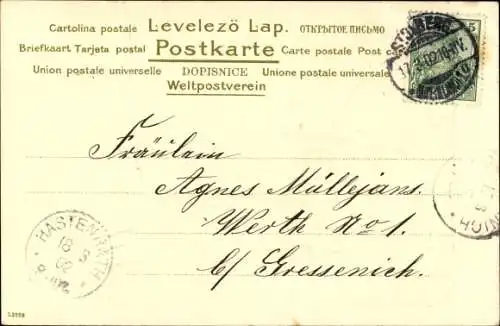 Cartolina postale Levelező Lap. ОТКРЫТОЕ ПИСЬМО
Briefkaart Tarjeta postal Postkarte Carte postale Post car
Union postale universelle DOPISNICE Unione postale universale
Weltpostverein
STOLBERG
Fräulein
Agnes Mülljans.
Werth No 1.
b/ Gressenich.
HASTENRATH